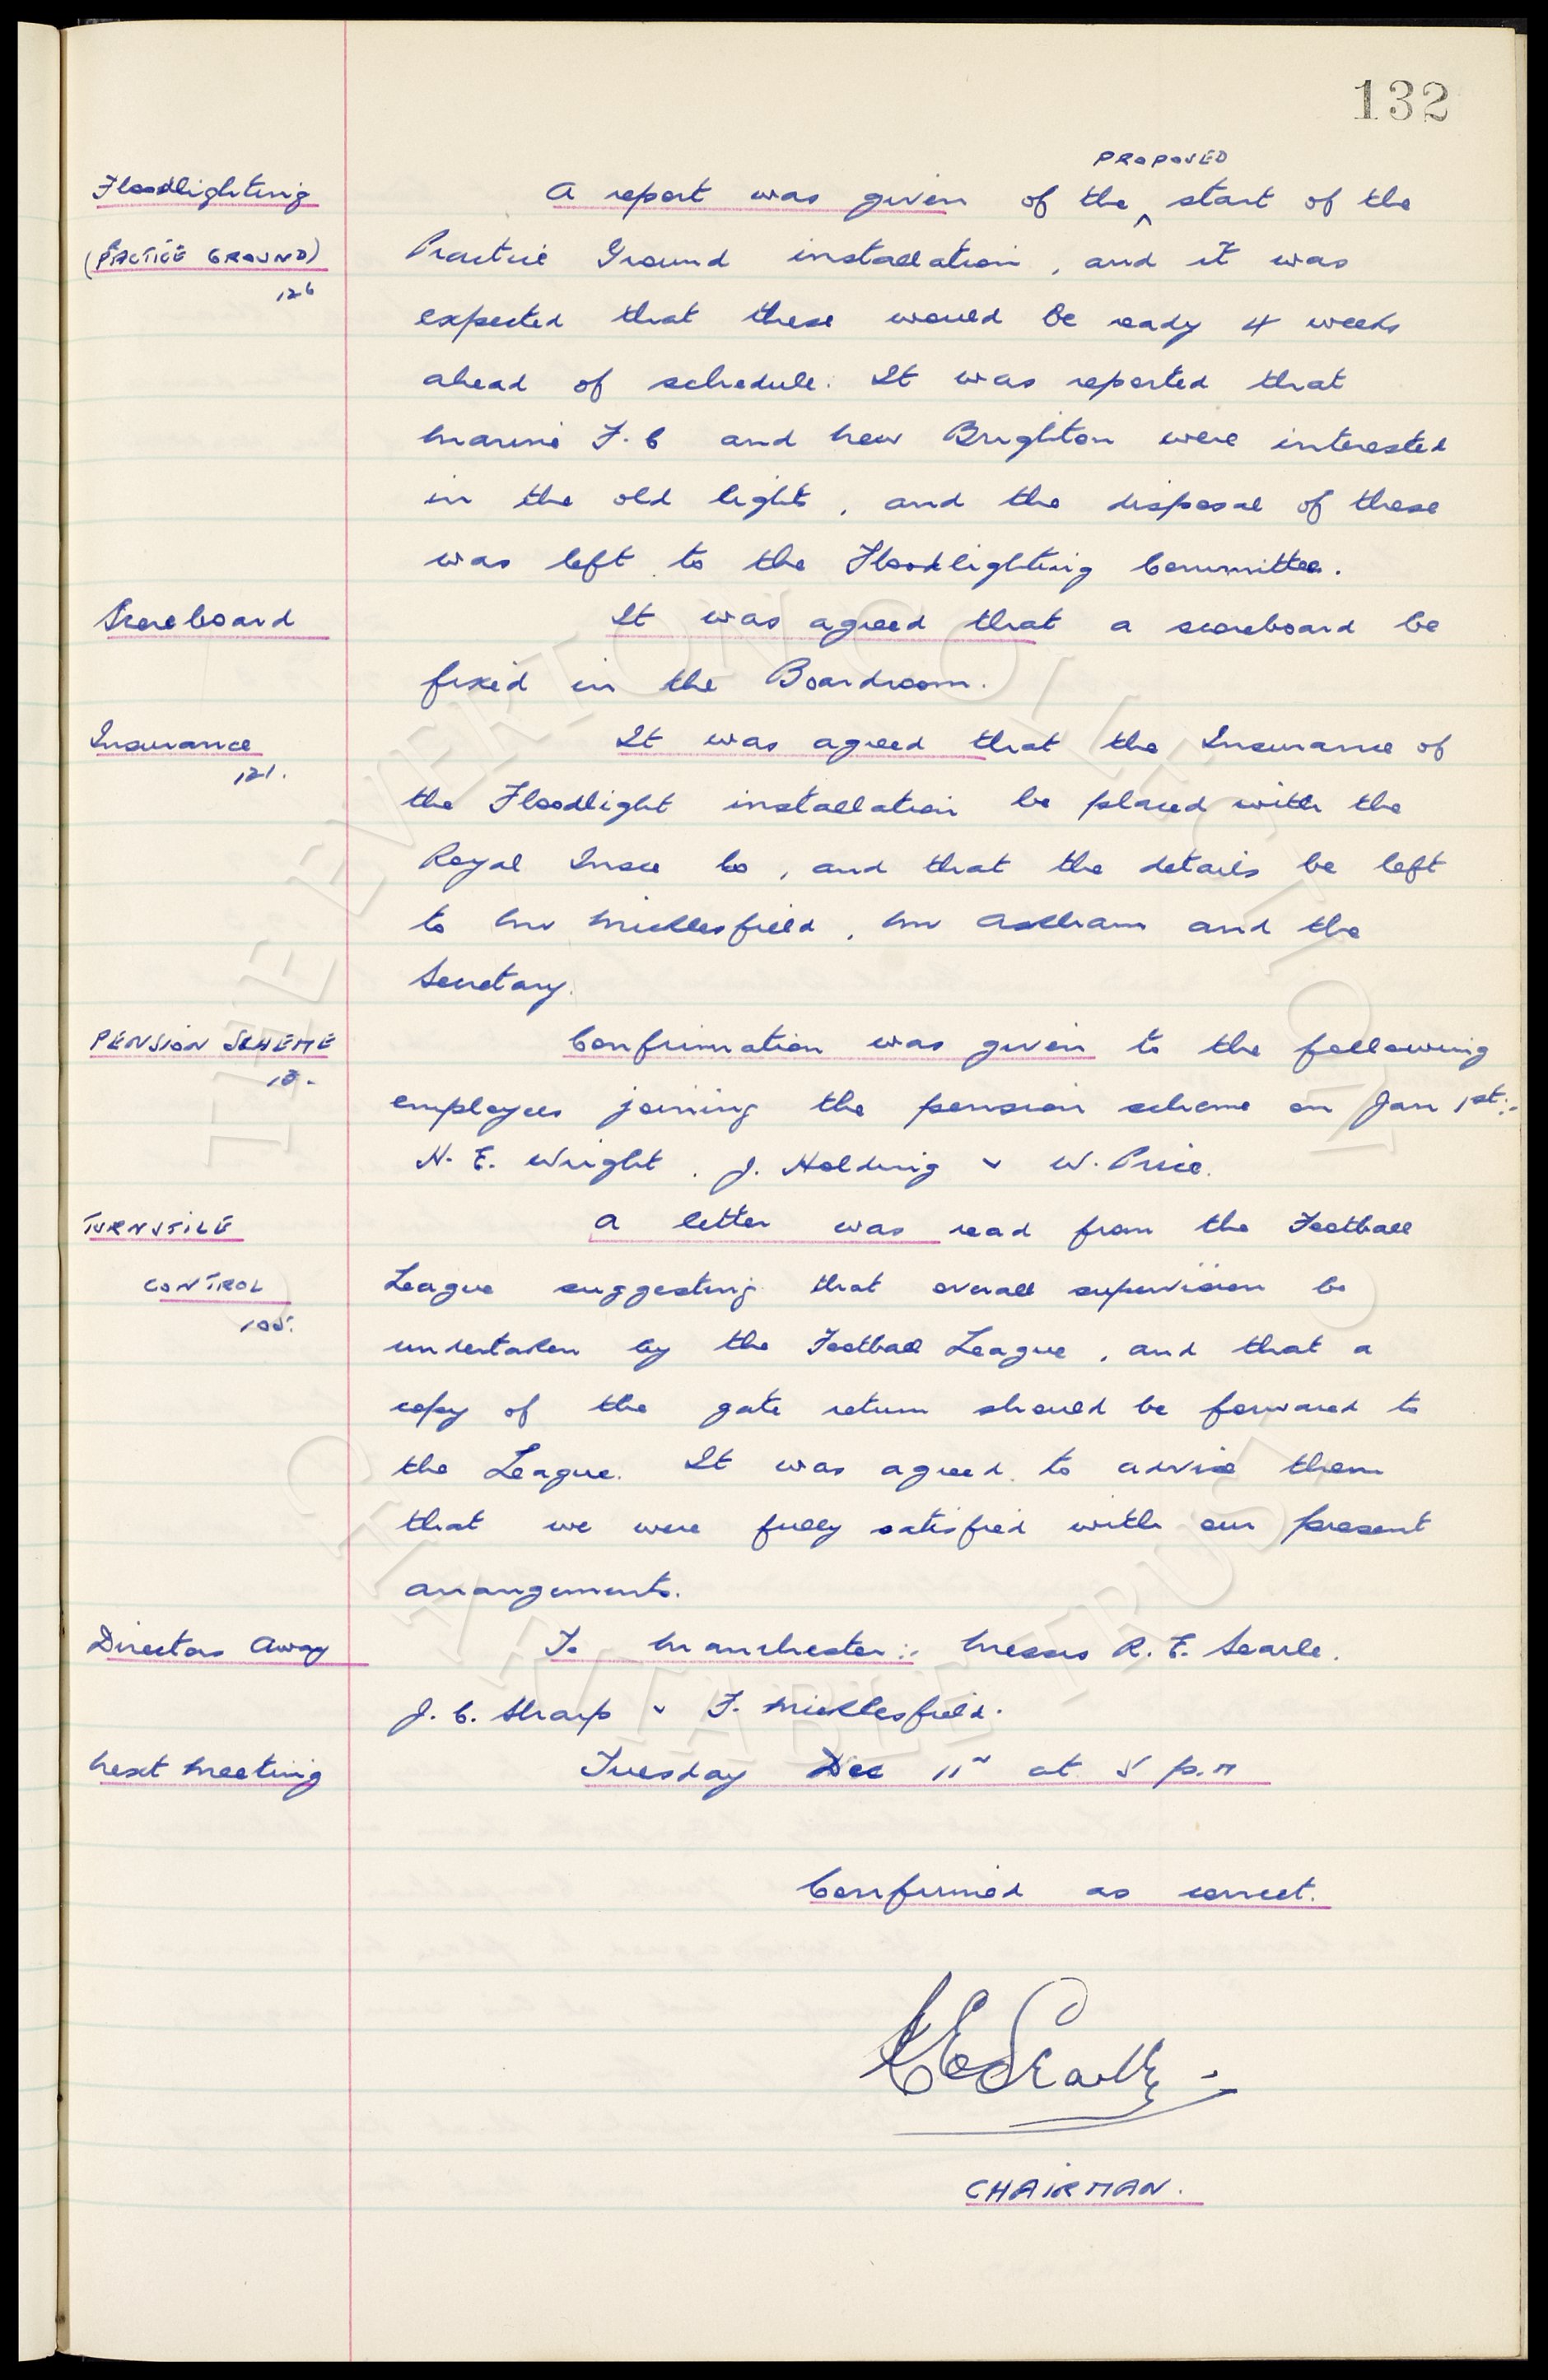 132
PROPOSED
Floodlighting A report was given of the ^ start of the
(PRACTICE GROUND) Practice Ground installation, and it was
126
expected that these would be ready 4 weeks
ahead of schedule. It was reported that
Marine F.C and New Brighton were interested
in the old lights, and the disposal of these
was left to the Floodlighting Committee.
Scoreboard It was agreed that a scoreboard be
fixed in the Boardroom.
Insurance It was agreed that the Insurance of
121.
the Floodlight installation be placed with the
Royal Insce Co, and that the details be left
to Mr Micklesfield, Mr Askham and the
Secretary.
PENSION SCHEME Confirmation was given to the following
employees joining the pension scheme on Jan 1st:-
N. E. Wright, J. Holding & W. Price.
TURNSTILE A letter was read from the Football
CONTROL League suggesting that overall supervision be
105.
undertaken by the Football League, and that a
copy of the gate return should be forward to
the League. It was agreed to advise them
that we were fully satisfied with our present
arrangements.
Directors Away To Manchester:- Messrs R. E. Searle,
J. C. Sharp & F. Micklesfield.
Next Meeting Tuesday Dec 11th at 5 p.m
Confirmed as correct.
R E Searle
CHAIRMAN.
THE EVERTON COLLECTION
CHARITABLE TRUST